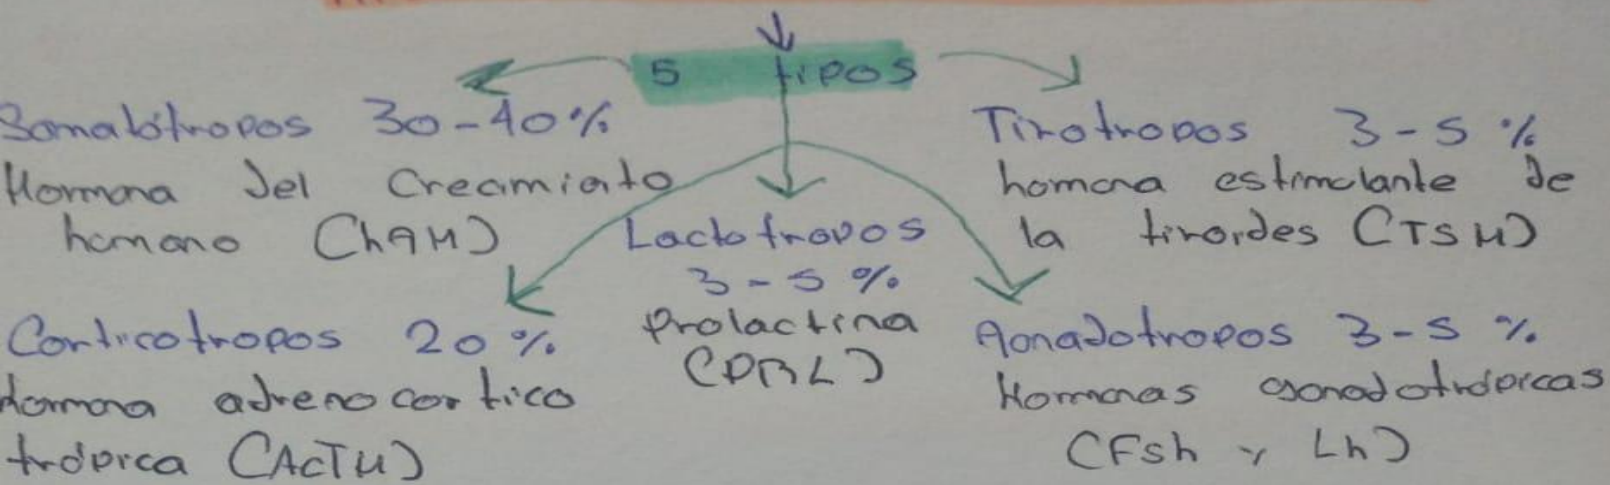 5 tipos
Somatótropos 30-40%
Hormona del Crecimiento
humano (hGH)
Tirotropos 3-5 %
homona estimulante de
la tiroides (TSH)
Lactotropos
3-5 %
Prolactina
(PRL)
Corticotropos 20 %
Hormona adreno cortico
trópica (ACTH)
Gonadotropos 3-5 %
Hormonas gonadotrópicas
(Fsh y Lh)